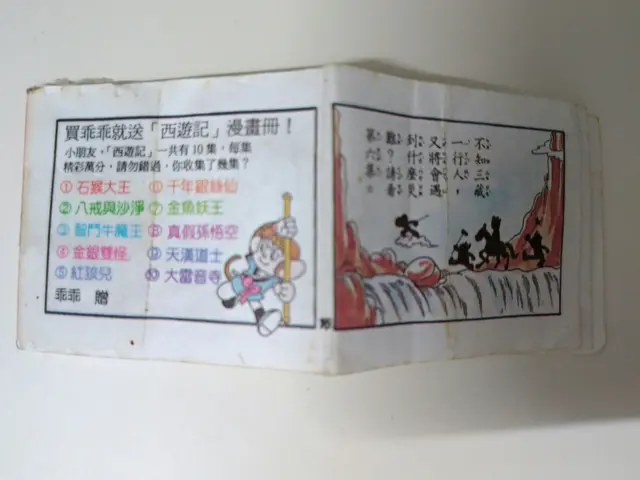 買乖乖就送「西遊記」漫畫冊！
小朋友，「西遊記」一共有10集，每集
精彩萬分，請勿錯過，你收集了幾集？
① 石猴大王
② 八戒與沙淨
③ 智鬥牛魔王
④ 金銀雙怪
⑤ 紅孩兒
⑥ 千年蜘蛛仙
⑦ 金魚妖王
⑧ 真假孫悟空
⑨ 天漢道士
⑩ 大雷音寺
乖乖 贈
不知三藏
一行人，
又將會遇
到什麼災
難？請看
第六集。